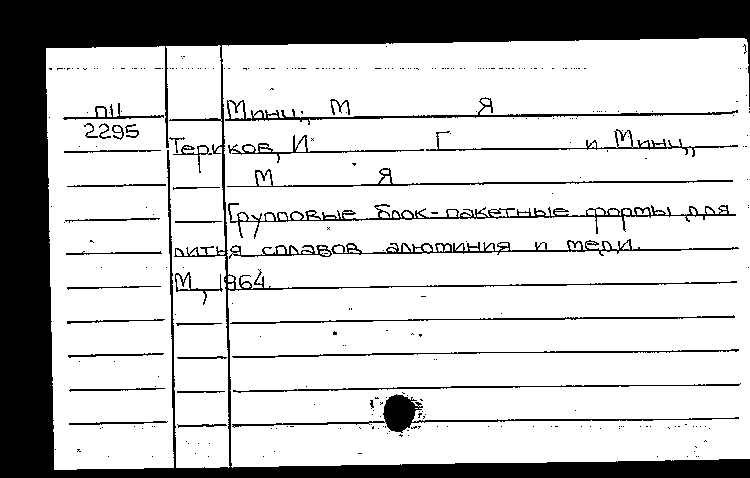 П11 Минц, М Я
2295
Териков, И Г и Минц,
М Я
Групповые блок-пакетные формы для
литья сплавов алюминия и меди.
М., 1964.